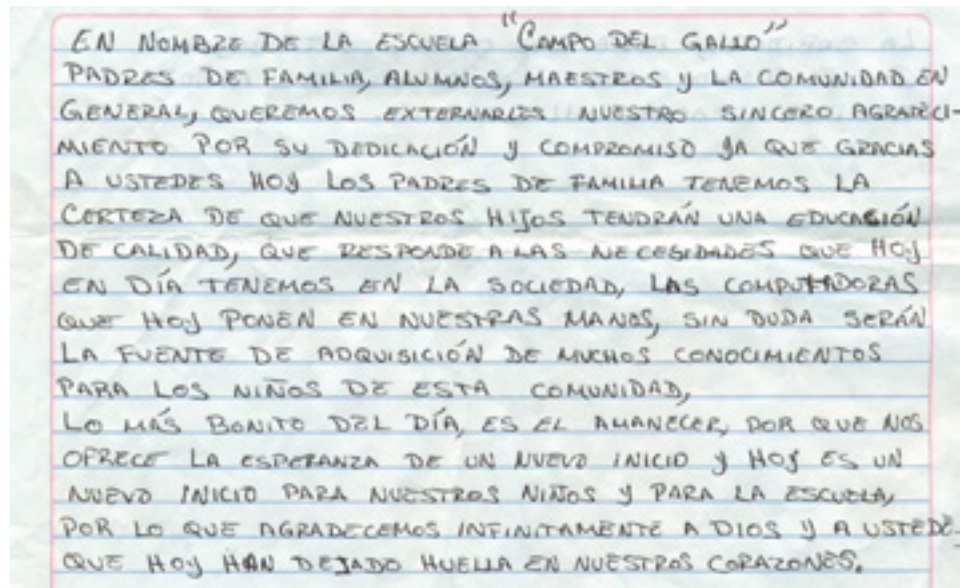 EN NOMBRE DE LA ESCUELA "CAMPO DEL GALLO"
PADRES DE FAMILIA, ALUMNOS, MAESTROS Y LA COMUNIDAD EN
GENERAL, QUEREMOS EXTERNARLES NUESTRO SINCERO AGRADECI-
MIENTO POR SU DEDICACIÓN Y COMPROMISO YA QUE GRACIAS
A USTEDES HOY LOS PADRES DE FAMILIA TENEMOS LA
CERTEZA DE QUE NUESTROS HIJOS TENDRÁN UNA EDUCACIÓN
DE CALIDAD, QUE RESPONDE A LAS NECESIDADES QUE HOY
EN DÍA TENEMOS EN LA SOCIEDAD, LAS COMPUTADORAS
QUE HOY PONEN EN NUESTRAS MANOS, SIN DUDA SERÁN
LA FUENTE DE ADQUISICIÓN DE MUCHOS CONOCIMIENTOS
PARA LOS NIÑOS DE ESTA COMUNIDAD,
LO MÁS BONITO DEL DÍA, ES EL AMANECER, POR QUE NOS
OFRECE LA ESPERANZA DE UN NUEVO INICIO Y HOY ES UN
NUEVO INICIO PARA NUESTROS NIÑOS Y PARA LA ESCUELA,
POR LO QUE AGRADECEMOS INFINITAMENTE A DIOS Y A USTEDE-
QUE HOY HAN DEJADO HUELLA EN NUESTROS CORAZONES.